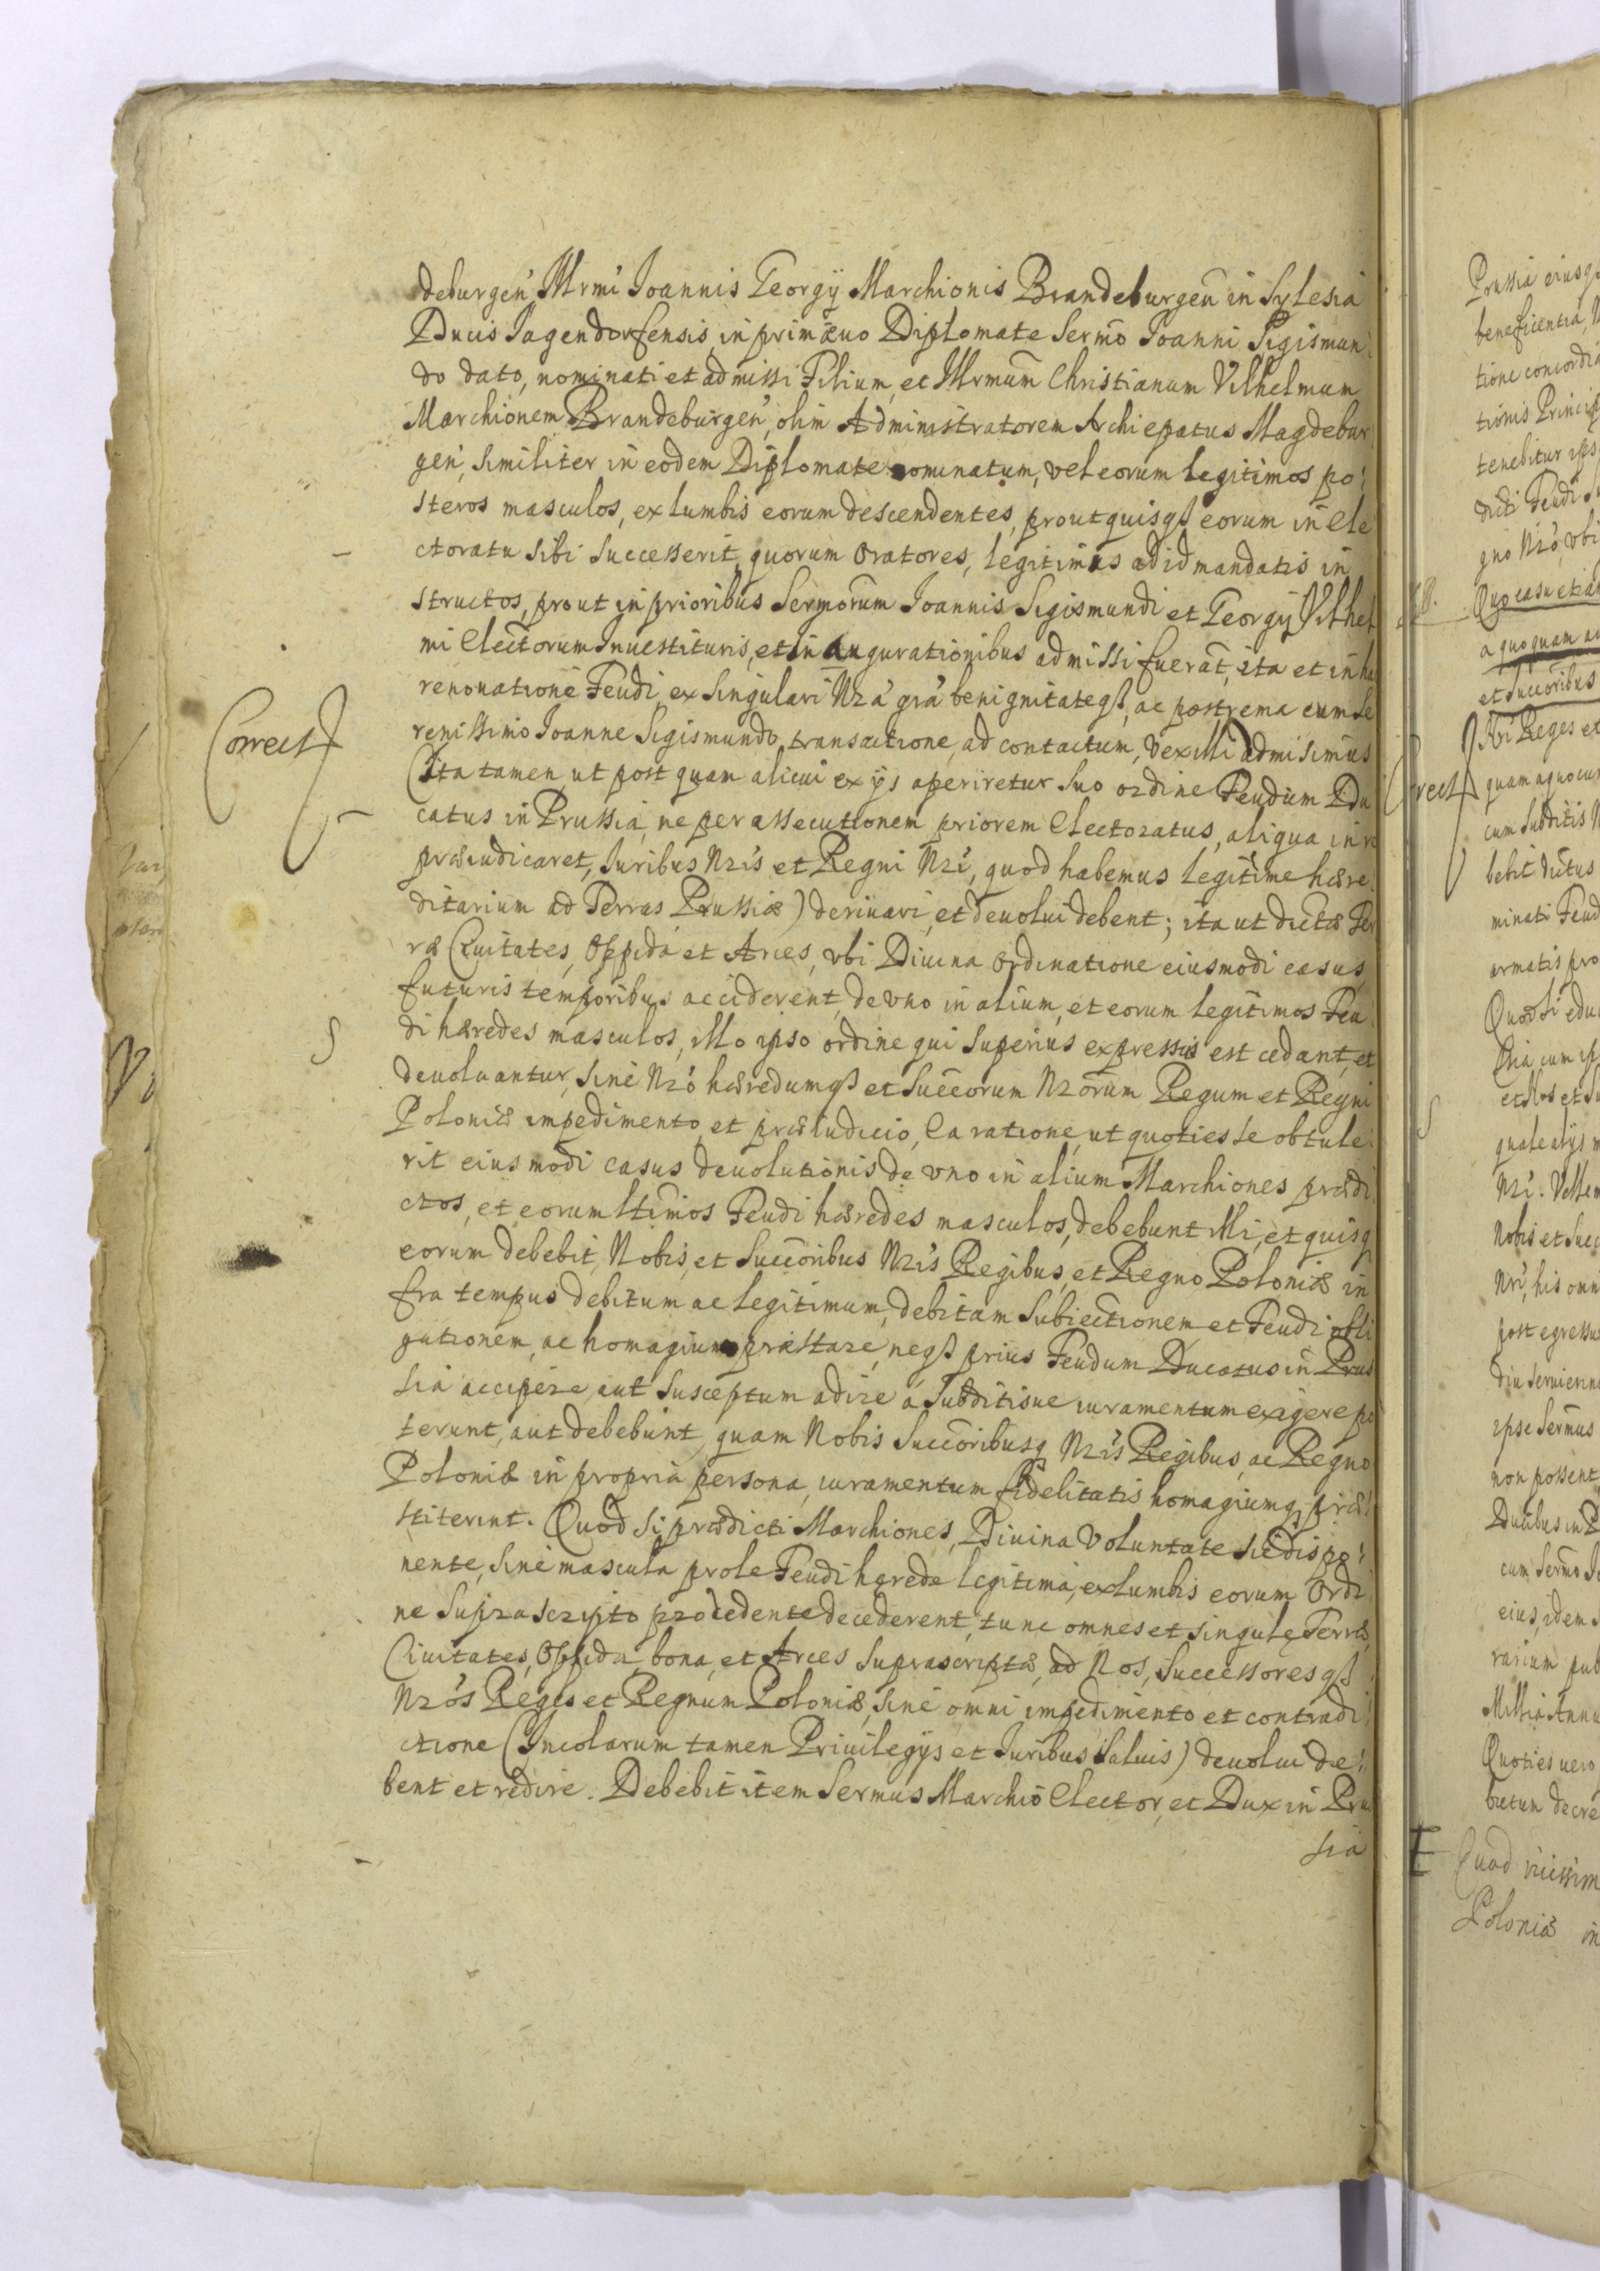 deburgen, Illrmi Joannis Georgÿ Marchionis Brandeburgen in Sylesia
Ducis Jagendorfensis, in primæuo Diplomate Sermo Joanni Sigismun
do dato, nominati et admissi Filium, et Illrmum Christianum Vilhelmum
Marchionem Brandeburgen, olim Administratorem Archiepatus Magdebur
gen, similiter in eodem Diplomate nominatum, vel eorum legitimos po
steros masculos, ex lumbis eorum descendentes, prout quisqß eorum in Ele
ctoratu sibi successerit, quorum Oratores, legitimis ad id mandatis in
structos, prout in prioribus Sermorum Joannis Sigismundi et Georgÿ Vilhel
mi Electorum Inuestituris, et inaugurationibus admissi fuerat, ita et in ha
renouatione Feudi, ex singulari Nra gra benignitateqß, ac postrema cum Se
Correct
renissimo Joanne Sigismundo transactione, ad contactum, vexilli admisimus
(Ita tamen, ut post quam alicui ex ÿs aperiretur suo ordine Feudum Du
catus in Prussia, ne per assecutionem priorem Electoratus, aliqua in re
præiudicaret, Juribus Nris et Regni Nri, quod habemus legitime hære
ditarium ad Terras Prussiæ) deriuari, et deuolui debent; ita ut dictæ Ter
ræ Ciuitates, Oppida et Arces, vbi Diuina Ordinatione eiusmodi casus
futuris temporibus acciderent, de vno in alium, et eorum legitimos Feu
di hæredes masculos, illo ipso ordine qui superius expressus est cedant, et
deuoluantur, sine Nro hæredumqß et Succorum Nrorum Regum et Regni
Poloniæ impedimento et præiudicio, Ea ratione, ut quoties se obtule
rit eiusmodi casus deuolutionis de vno in alium Marchiones prædi
ctos, et eorum ltimos Feudi hæredes masculos, debebunt illi, et quisq
eorum debebit, Nobis, et Succoribus Nris Regibus, et Regno Poloniæ in
fra tempus debitum ac legitimum, debitam Subiectionem et Feudi obli
gationem, ac homagium præstare, neqß prius Feudum Ducatus in Prus
sia accipere, aut susceptum adire a Subditisue iuramentum exigere po
terunt, aut debebunt, quam Nobis Succoribusq Nris Regibus, ac Regno
Poloniæ in propria persona, iuramentum fidelitatis homagiumq præ
stiterint. Quod si prædicti Marchiones, Diuina Voluntate sic dispo
nente, sine mascula prole Feudi hærede legitima, ex lumbis eorum Ordi
ne suprascripto procedente decederent, tunc omnes et singulę Terræ,
Ciuitates, Oppida, bona, et Arces suprascriptæ, ad Nos, Successoresqß
Nros Reges et Regnum Poloniæ, sine omni impedimento et contradi
ctione (Incolarum tamen Priuilegÿs et Juribus saluis) deuolui de
bent et redire. Debebit item Sermus Marchio Elector, et Dux in Prus
sia
Prussia eiusq
beneficentia, N
tione concordia
tionis Princip
tenebitur ips
dicti Feudi
gno Nro, vbi
Quo casu etiam
a quoquam
et Succoribus
Reges et
quam agnocun
cum Subditis N
bebit dictus
minati Feud
armatis pro
Quod si
cum
et Nos et Su
quale alÿs
Nri. Vellem
Nobis et Succ
Nri, his omni
post egressu
diu seruierin
ipse Sermus
non possent
Ducibus in P
cum Sermo Jo
eius, idem
rarium pub
Millia Annu
Quoties vero
butum decre
Quod vicissim
Poloniæ in